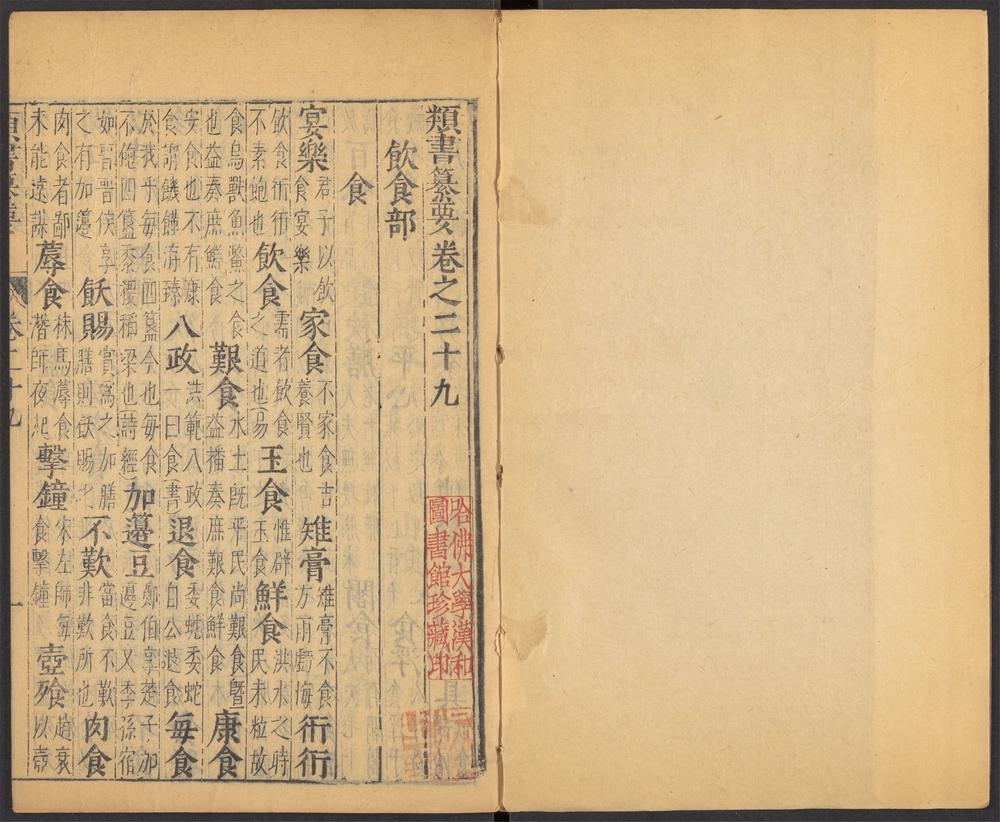 類書纂要卷之二十九
飲食部
食
宴樂 君子以飲食宴樂 家食 不家食吉養賢也 雉膏 雉膏不食方雨虧悔 衎衎
飲食衎衎不素飽也 飲食 需者飲食之道也易 玉食 惟辟玉食 鮮食 洪水之時民未粒故
食鳥獸魚鱉之食也益奏庶鮮食 艱食 水土既平民尚艱食曁益播奏庶艱食鮮食 康食
安食也不有康食謂饑饉洊臻 八政 洪範八政一曰食書 退食 委蛇委蛇自公退食 每食
於我乎每食四簋今也每食不飽四簋黍稷稻梁也詩經 加籩豆 鄭伯享楚子加籩豆又季孫宿
如晉晉侯享之有加籩 飫賜 賞爲之加膳膳則飫賜 不歎 當食不歎非歎所也 肉食
肉食者鄙未能遠謀 蓐食 秣馬蓐食潛師夜起 擊鐘 宋左師每食擊鐘 壺飱 趙衰以壺
類書纂要
卷二十九
一
哈佛大學漢和圖書館珍藏印